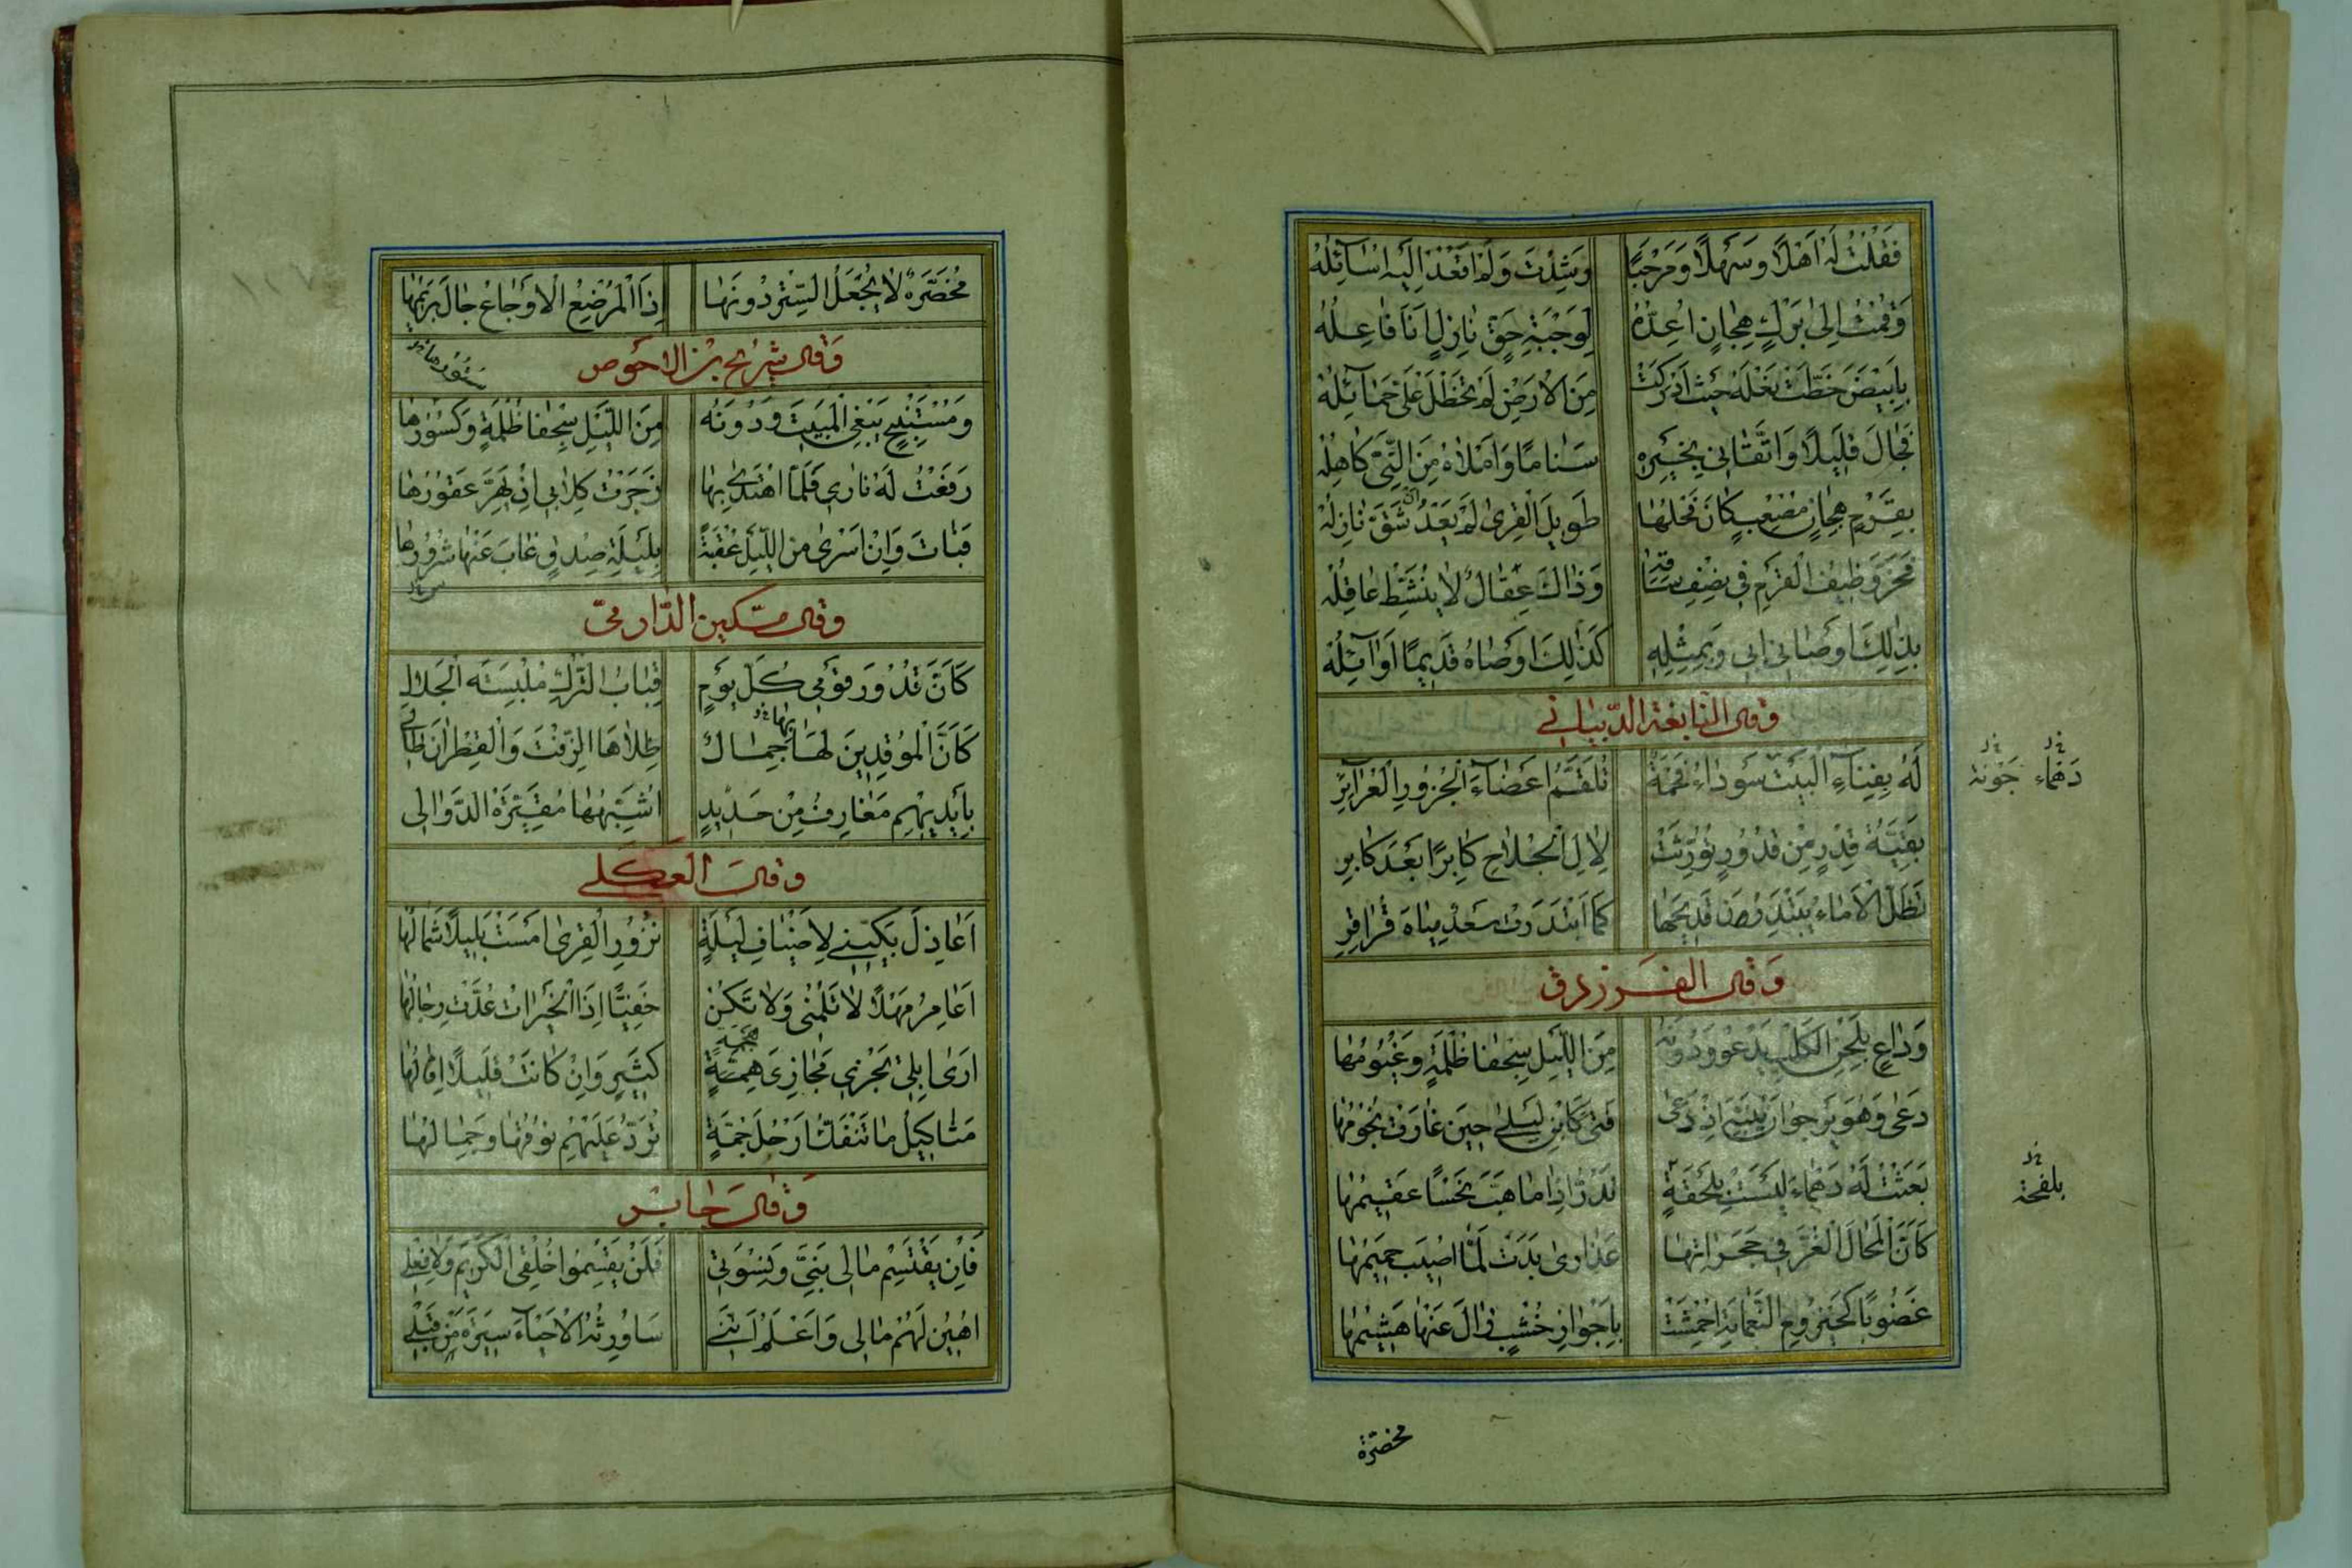 فَقُلْتُ لَهُ اَهْلًا وَسَهْلًا وَمَرْحَبًا وَرَشِدْتَ وَلَمْ اَقْعُدْ اِلَيْهِ اُسَآئِلُهْ
وَقُمْتُ اِلٰى بَرْكٍ هِجَانٍ اُعِدُّهُ لِوَجْبَةِ حَقٍّ نَازِلٍ اَنَا فَاعِلُهْ
بِاَبْيَضَ خَطَّتْ نَعْلُهُ حَيْثُ اَدْرَكَتْ مِنَ الْاَرْضِ لَمْ تَخْطَلْ عَلَىَّ حَمَآئِلُهْ
فَجَالَ قَلِيلًا وَاتَّقَانِي بِخَيْرِهِ سَنَامًا وَاَمْلَاهُ مِنَ النَّيِّ كَاهِلُهْ
بِقَرْمٍ هِجَانٍ مُصْعَبٍ كَانَ فَحْلَهَا طَوِيلِ الْقَرٰى لَمْ يَعْدُ اَنْ شَقَّ نَازِلُهْ
فَخَرَّ وَظِيفُ الْقَرْمِ فِي نِصْفِ سَاقِهِ وَذَاكَ عِقَالٌ لَا يُنَشَّطُ عَاقِلُهْ
بِذٰلِكَ اَوْصَانِي اَبِي وَبِمِثْلِهِ كَذٰلِكَ اَوْصَاهُ قَدِيمًا اَوَآئِلُهْ
وقال النابغة الذبيانى
لَهُ بِفِنَآءِ الْبَيْتِ سَوْدَاءُ فَخْمَةٌ تُلَقَّمُ اَعْضَآءَ الْجَزُورِ الْعُرَاعِرِ
دهماء جونة
بَقِيَّةُ قِدْرٍ مِنْ قُدُورٍ تُوُرِّثَتْ لِاٰلِ الْجُلَاحِ كَابِرًا بَعْدَ كَابِرِ
تَظَلُّ الْاِمَاءُ يَبْتَدِرْنَ قَدِيحَهَا كَمَا ابْتَدَرَتْ سَعْدٌ مِيَاهَ قُرَاقِرِ
وَقال الفرزدق
وَدَاعٍ بِلَحْنِ الْكَلْبِ يَدْعُو وَدُونَهُ مِنَ اللَّيْلِ سِجْفَا ظُلْمَةٍ وَغُيُومُهَا
دَعٰى وَهُوَ يَرْجُو اَنْ يُنَبِّهَ اِذْ دَعٰى فَتًى كَابْنِ لَيْلٰى حِينَ غَارَتْ نُجُومُهَا
بَعَثْتُ لَهُ دَهْمَاءَ لَيْسَتْ بِلِحْقَةٍ تَدُرُّ اِذَا مَا هَبَّ نَحْسًا عَقِيمُهَا
بلقحة
كَاَنَّ الْمَحَالَ الْغُرَّ فِي حَجَرَاتِهَا عَذَارٰى بَدَتْ لَمَّا اُصِيبَ حَمِيمُهَا
غَضُوبًا كَحَيْزُومِ النَّعَامَةِ اُحْمِشَتْ بِاَجْوَازِ خُشْبٍ زَالَ عَنْهَا هَشِيمُهَا
مخضرة
مُخَضَّرَةٌ لَا يُجْعَلُ السِّتْرُ دُونَهَا اِذَا الْمُرْضِعُ الْاَوْجَاعِ جَالَ بَرِيمُهَا
وَقال شريح بن الاحوص
ستورها
وَمُسْتَنْبِحٍ يَبْغِي الْمَبِيتَ وَدُونَهُ مِنَ اللَّيْلِ سِجْفَا ظُلْمَةٍ وَكُسُورُهَا
رَفَعْتُ لَهُ نَارِي فَلَمَّا اهْتَدٰى بِهَا زَجَرْتُ كِلَابِي اَنْ يَهِرَّ عَقُورُهَا
فَبَاتَ وَاِنْ اَسْرٰى مِنَ اللَّيْلِ عُقْبَةً بِلَيْلَةِ صِدْقٍ غَابَ عَنْهَا شُرُورُهَا
وقال مسكين الدّارمىّ
كَاَنَّ قُدُورَ قَوْمِي كُلَّ يَوْمٍ قِبَابُ التُّرْكِ مُلْبِسَةَ الْجِلَالِ
كَاَنَّ الْمُوقِدِينَ لَهَا جِمَالٌ طَلَاهَا الزِّفْتَ وَالْقَطِرَانَ طَالِي
بها
بِاَيْدِيهِمْ مَغَارِفُ مِنْ حَدِيدٍ اُشَبِّهُهَا مُقَيَّرَةَ الدَّوَالِى
وقال العكلى
اَعَاذِلَ بَكِّينِي لِاَضْيَافِ لَيْلَةٍ نَزُورِ الْقِرٰى اَمْسَتْ بَلِيلًا شَمَالُهَا
اَعَامِرُ مَهْلًا لَا تَلُمْنِي وَلَا تَكُنْ خَفِيًّا اِذَا الْخَيْرَاتُ عُدَّتْ رِجَالُهَا
اَرٰى اِبِلِي تَجْزِي مَجَازِيَ هَجْمَةٍ كَثِيرٍ وَاِنْ كَانَتْ قَلِيلًا اِفَالُهَا
مَثَاكِيلُ مَا تَنْفَكُّ اَرْحُلُ جُمَّةٍ تُرَدُّ عَلَيْهِمْ نُوقُهَا وَجِمَالُهَا
وَقال جابر
فَاِنْ يَقْتَسِمْ مَالِى بَنِيَّ وَنِسْوَتِي فَلَنْ يَقْسِمُوا خُلْقِي الْكَرِيمَ وَلَا فِعْلِي
اُهِينُ لَهُمْ مَالِى وَاَعْلَمُ اَنَّنِي سَاُورِثُهُ الْاَحْيَآءَ سِيرَةَ مَنْ قَبْلِي